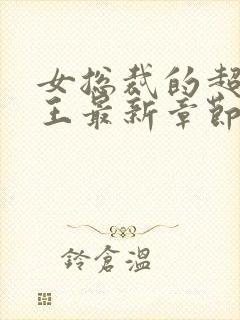 女总裁的超
王最新章節
鈴倉溫